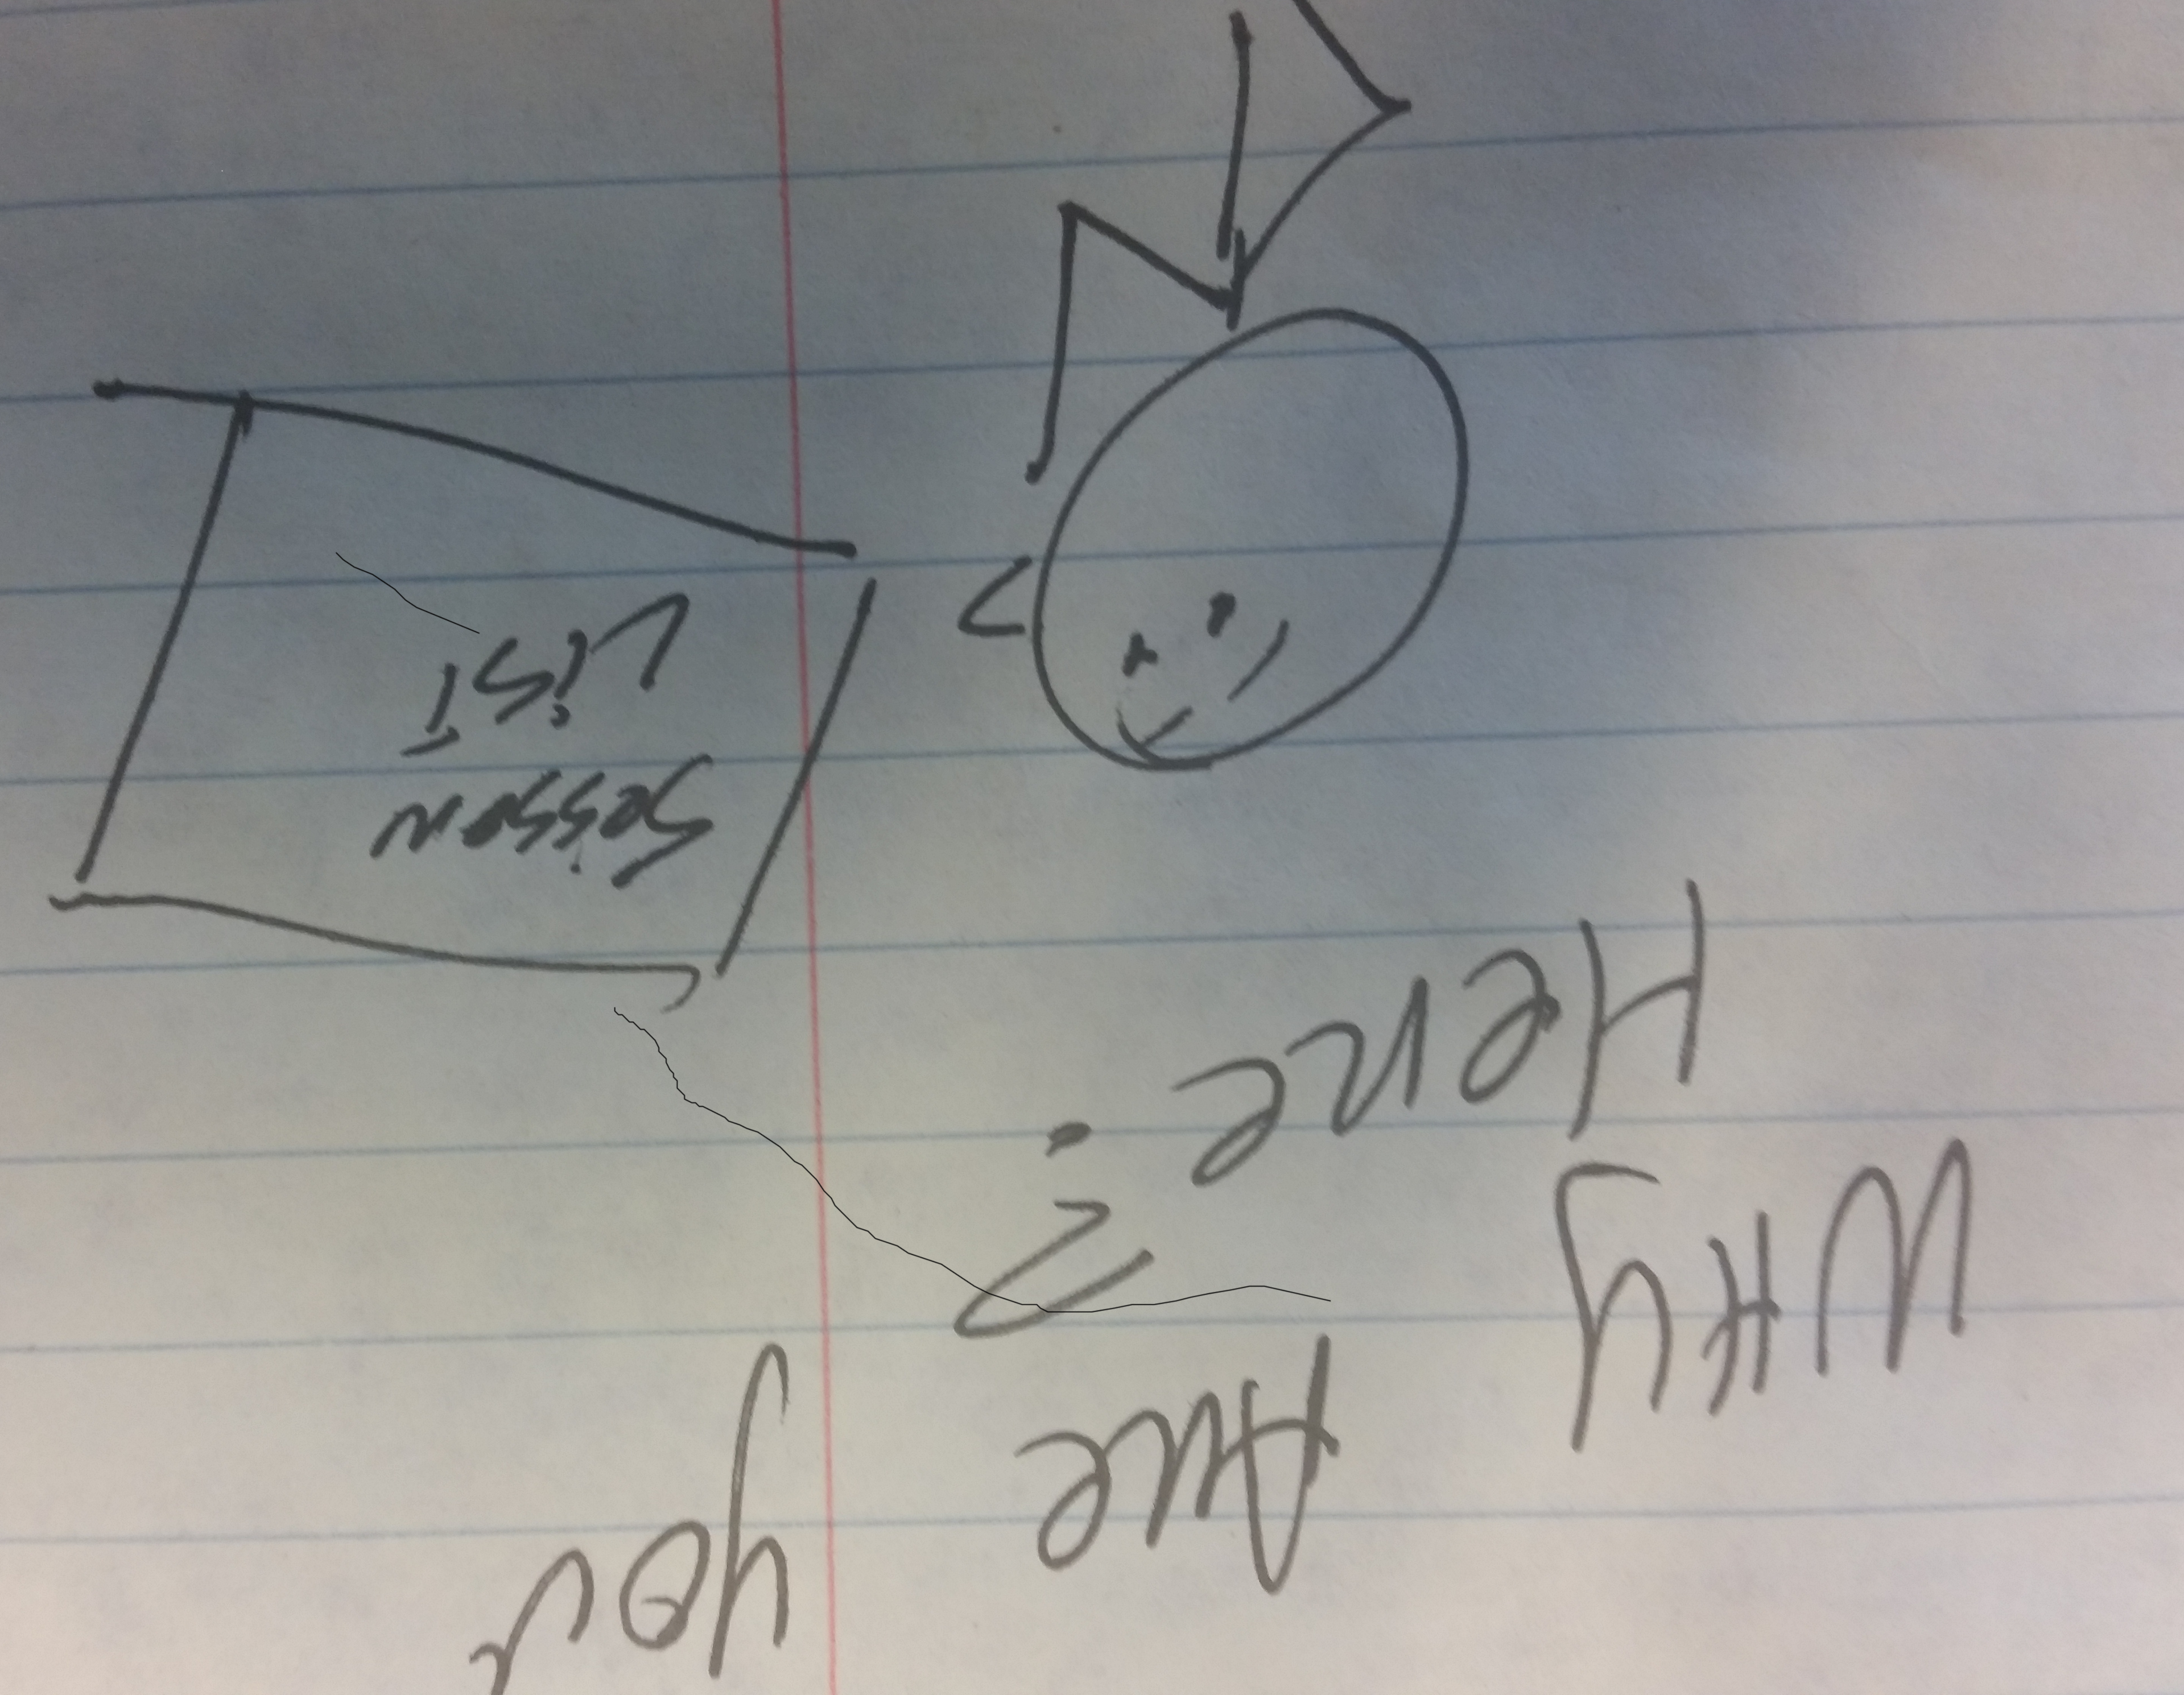 WHy Are you
Here?
Session
List